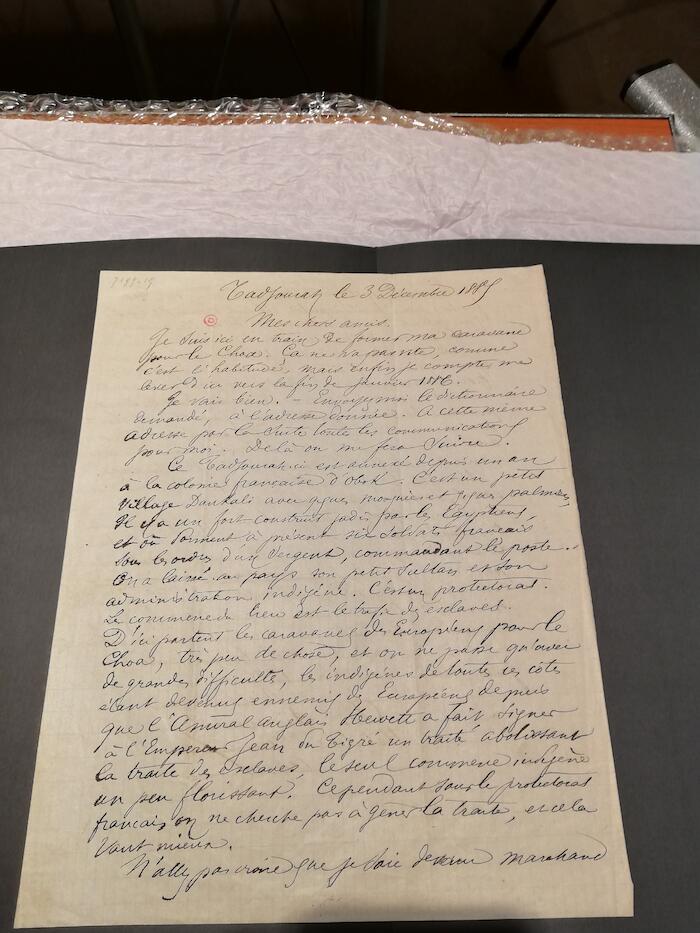 Tadjourah le 3 Décembre 1885
Mes chers amis,
Je suis ici en train de former ma caravane
pour le Choa. Ça ne va pas vite, comme
c'est l'habitude, mais enfin je compte me
lever d'ici vers la fin de janvier 1886.
Je vais bien. - Envoyez moi le dictionnaire
demandé, à l'adresse donnée. A cette même
adresse par la suite toutes les communications
pour moi. De là on me fera suivre.
Ce Tadjourah-ci est annexé depuis un an
à la colonie française d'Obok. C'est un petit
village Dankali avec qques mosquées et qques palmiers.
Il y a un fort construit jadis par les Egyptiens,
et où dorment à présent six soldats français
sous les ordres d'un sergent, commandant le poste.
On a laissé au pays son petit sultan et son
administration indigène. C'est un protectorat.
Le commerce du lieu est le trafic des esclaves.
D'ici partent les caravanes des Européens pour le
Choa, très peu de chose, et on ne passe qu'avec
de grandes difficultés, les indigènes de toutes ces côtes
étant devenus ennemis des Européens depuis
que l'Amiral anglais Hewett a fait signer
à l'Empereur Jean du Tigré un traité abolissant
la traite des esclaves, le seul commerce indigène
un peu florissant. Cependant sous le protectorat
français on ne cherche pas à gêner la traite, et cela
vaut mieux.
N'allez pas croire que je sois devenu marchand